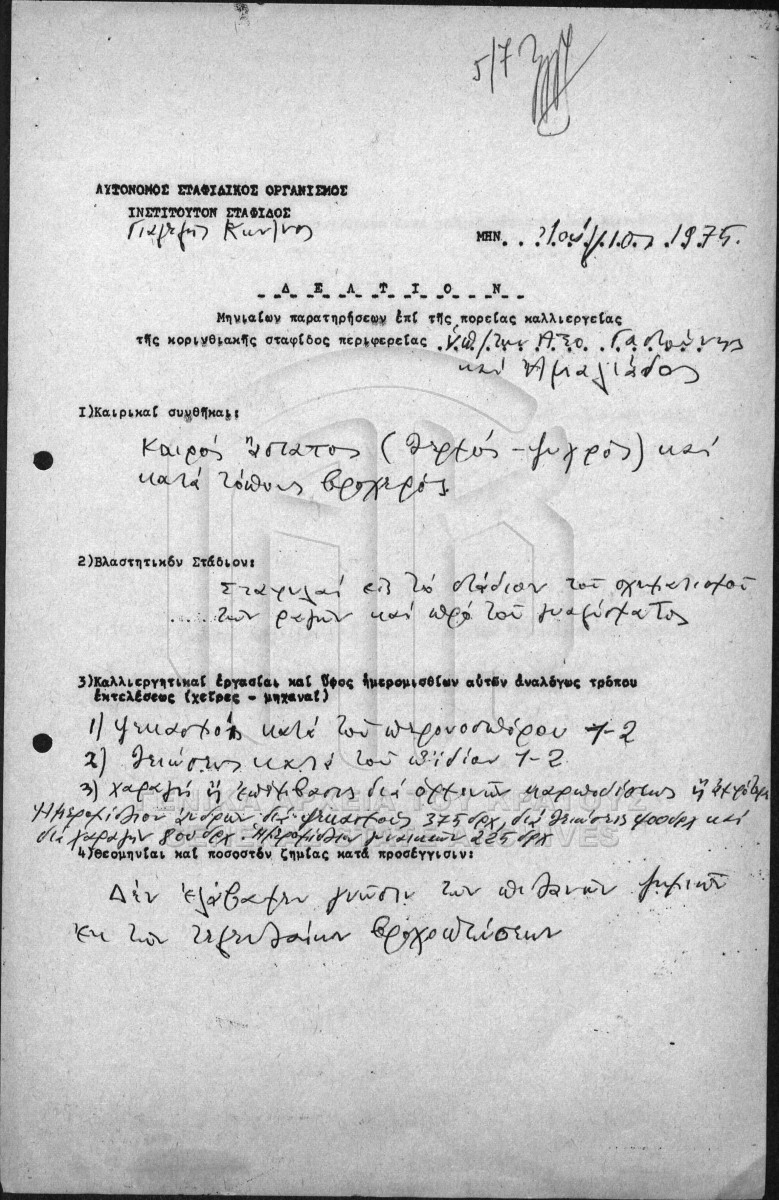 5/7
ΑΥΤΟΝΟΜΟΣ ΣΤΑΦΙΔΙΚΟΣ ΟΡΓΑΝΙΣΜΟΣ
ΙΝΣΤΙΤΟΥΤΟΝ ΣΤΑΦΙΔΟΣ
ΜΗΝ. Ἰούνιος 1975.
Δ Ε Λ Τ Ι Ο Ν
Μηνιαίων παρατηρήσεων ἐπί τῆς πορείας καλλιεργείας
τῆς κορινθιακῆς σταφίδος περιφερείας Ὑπ/των ΑΣΟ Γαστούνης
καί Ἀμαλιάδος
1)Καιρικαί συνθῆκαι:
Καιρός ἄστατος (θερμός - ψυχρός) καί
κατά τόπους βροχερός
2)Βλαστητικόν Στάδιον:
Σταφυλαί εἰς τό στάδιον τοῦ σχηματισμοῦ
τῶν ραγῶν καί πρό τοῦ γυαλίσματος
3)Καλλιεργητικαί ἐργασίαι καί ὕψος ἡμερομισθίων αὐτῶν ἀναλόγως τρόπου
ἐκτελέσεως (χεῖρες - μηχαναί)
1) Ψεκασμοί κατά τοῦ περονοσπόρου 1-2
2) Θειώσεις κατά τοῦ ὠϊδίου 1-2
3) Χαραγή ἤ ἐπέμβασις διά ὁρμονῶν καρποδέσεως ἤ
Ἡμερομίσθιον ἀνδρῶν διά ψεκασμούς 375 δρχ, διά θειώσεις 400 δρχ καί
διά χαραγήν 800 δρχ. Ἡμερομίσθιον γυναικῶν 225 δρχ
4)Θεομηνίαι καί ποσοστόν ζημίας κατά προσέγγισιν:
Δέν ἐλάβαμεν γνῶσιν τῶν πιθανῶν ζημιῶν
ἐκ τῶν τελευταίων βροχοπτώσεων
ΓΕΝΙΚΑ ΑΡΧΕΙΑ ΤΟΥ ΚΡΑΤΟΥΣ
GENERAL STATE ARCHIVES